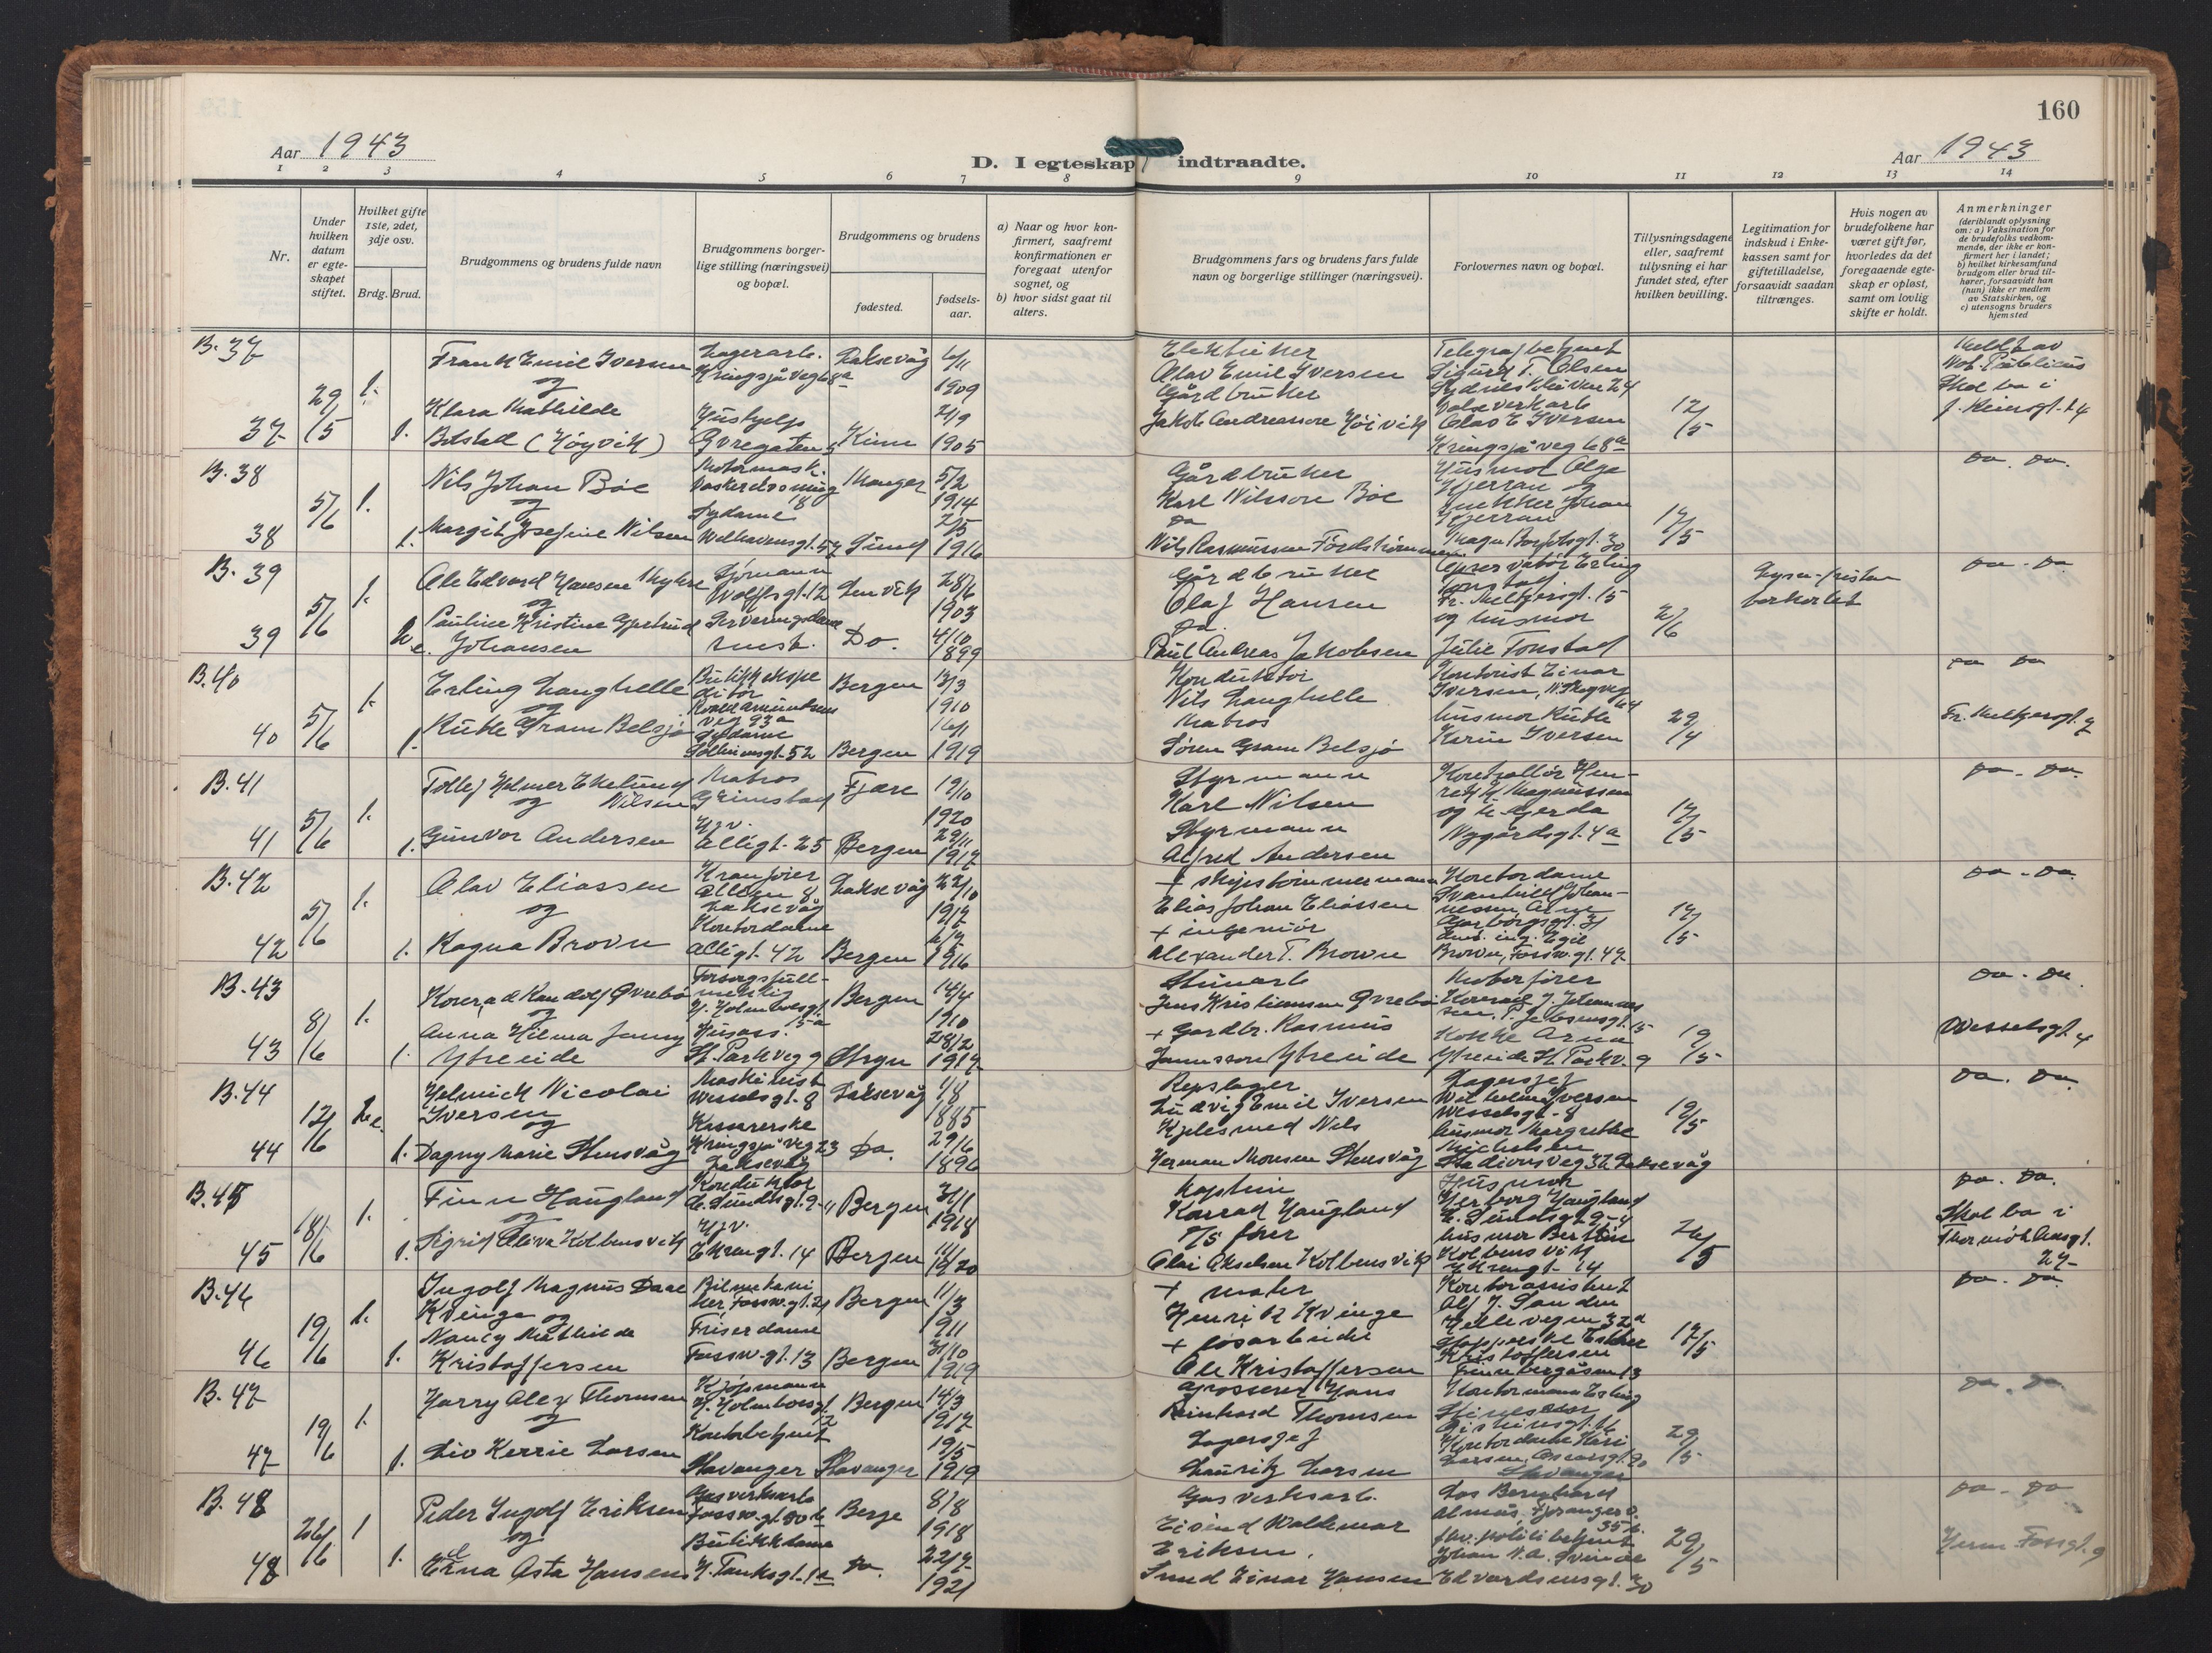 160
Aar 1943
D. I egteskap indtraadte.
Aar 1943
1 2 3 4 5 6 7 8 9 10 11 12 13 14
Nr.
Under hvilken datum er egteskapet stiftet.
Hvilket gifte 1ste, 2det, 3dje osv.
Brdg. Brud.
Brudgommens og brudens fulde navn
Brudgommens borgerlige stilling (næringsvei) og bopæl.
Brudgommens og brudens
fødested.
fødselsaar.
a) Naar og hvor konfirmert, saafremt konfirmationen er foregaat utenfor sognet, og
b) hvor sidst gaat til alters.
Brudgommens fars og brudens fars fulde navn og borgerlige stillinger (næringsvei).
Forlovernes navn og bopæl.
Tillysningsdagene eller, saafremt tillysning ei har fundet sted, efter hvilken bevilling.
Legitimation for indskud i Enkekassen samt for giftetilladelse, forsaavidt saadan tiltrænges.
Hvis nogen av brudefolkene har været gift før, hvorledes da det foregaaende egteskap er opløst, samt om lovlig skifte er holdt.
Anmerkninger
(deriblandt oplysning om: a) Vaksination for de brudefolks vedkommende, der ikke er konfirmert her i landet;
b) hvilket kirkesamfund brudgom eller brud tilhører, forsaavidt han (hun) ikke er medlem av Statskirken, og
c) utensogns bruders hjemsted
B. 37
29/5 1.
Frank Emil Iversen
og
Klara Mathilde
37 1. Botstad (Høyvik)
Lagerarb.
Kringsjåveg 68a
Hushjelp
Øvregaten 5
Laksevåg 6/11 1909
Kinn 21/9 1905
Elektriker
Olav Emil Iversen
Gårdbruker
Jakob Andreassen Høivik
Telegrafbetjent
Sigurd T. Olsen
Valseverkarb
Olav E Iversen
Kringsjåveg 68a
12/5
Meldt av
Not. Publicus
Skal bo i
B. 38
5/6 1.
Nils Johan Bøe
og
38 1. Margit Josefine Nilsen
Motormask.
18
Sydame
Welhavensgt. 57
Manger 5/2 1914
Sund 2/5 1916
Gårdbruker
Karl Nilsson Bøe
Do
Nils Rasmussen
Husmor Olga
Kjerran og
Johan
Kjerran
30
17/5
Do. Do.
B. 39
5/6 1.
Ole Edvard Hansen
og
Pauline Kristine Gjertrud
39 2 e. Johansen
Sjømann
Wolffsgt. 12
Serveringsdame
smst.
Lenvik 28/6 1903
Do. 4/10 1899
Gårdbruker
Olaf Hansen
Do.
Paul Andreas Jakobsen
Erling
Tonstad
Fr. Meltzersgt. 15
og husmor
Julie Tonstad
2/6
Do. Do
B. 40
5/6 1.
Erling Langhelle
og
40 1. Ruthe Gram Belsjø
Butikkekspe
ditør
Roald Amundsens
veg 93a
Sydame
Sollieinsgt. 52
Bergen 13/3 1910
Bergen 16/1 1919
Konduktør
Nils Langhelle
Matros
Søren Gram Belsjø
Kontorist Einar
Iversen, N. Skogveg
64
husmor Ruthe
Karin Iversen
29/4
Do Do
Fr. Meltzersgt. 7
B. 41
5/6 1.
Tollef Helmer Ekelund
og Nilsen
41 1. Gunvor Andersen
Matros
Grimstad
Hjv.
Allégt. 25
Fjære 12/10 1920
Bergen 29/11 1917
Styrmann
Karl Nilsen
Styrmann
Alfred Andersen
Kontrollør Hen-
rik Magnussen
og fr. Gerda
Nygårdsgt. 4a
17/5
Do. Do.
B. 42
5/6 1.
Olav Eliassen
og
42 1. Ragna Brown
Kranfører
Alléen 8
Laksevåg
Kontordame
Allégt. 42
Laksevåg 22/10 1917
Bergen 1916
+ skipstømmermann
Elias Johan Eliassen
+ ingeniør
Alexander T. Brown
Kontordame
Svanhild Johan-
nessen,
31
ing. Egil
Brown, Fossw.gt. 47
17/5
Do. Do.
B. 43
8/6 1.
Konrad Randolf Øvrebø
og
Anna Hilma Jenny
43 1. Ytreeide
Forsorgsfull-
mektig
J. Holmboesgt.
15a
Husass.
St. Parkveg 9
Bergen 14/4 1910
Stryn 28/2 1917
Jens Kristiansen Øvrebø
+ Gardbr. Rasmus
Jonnsson Ytreeide
Motorfører
Konrad J. Johannes
sen, P. Jebsensgt. 15
Kokke Arna
Ytreeide St. Parkv. 9
19/5
Do. Do
Wesselsgt. 4
B. 44
12/6 2 e.
Helmich Nicolai
Iversen
og
44 1. Dagny Marie Stensvåg
Maskinist
Wesselsgt. 8
Kassererske
Kringsjåveg 23
Laksevåg
Laksevåg 1/8 1885
Do. 29/6 1896
Repslager
Ludvig Emil Iversen
Kjelesmed Nils
Herman Monsen Stensvåg
Lagersjef
Wilhelm Iversen
Wesselsgt. 8
husmor Margrethe
Michelsen
Stadionsveg 32 Laksevåg
19/5
Do. Do.
B. 45
18/6 1.
Finn Haugland
og
45 1. Sigrid Oliva Kolbensvik
Konduktør
E. Sundtsgt. 9-4
Hjv.
Ekrengt. 14
Bergen 31/1 1918
Bergen 1920
Kaptein
Konrad Haugland
D/S fører
Olai Akselsen Kolbensvik
Husmor
Herborg Haugland
E. Sundtsgt. 9-4
husmor Bertine
Kolbensvik
Ekrengt. 14
26/5
Do. Do.
Skal bo i
Thormøhlensgt.
27
B. 46
19/6 1.
Ingolf Magnus Daae
Kvinge og
Nancy Mathilde
46 1. Kristoffersen
Bilmekani
ker, Fossw.gt. 21
Friserdame
Fossw.gt. 13
Bergen 11/3 1911
Bergen 31/10 1919
+ maler
Henrik Kvinge
+ løsarbeider
Ole Kristoffersen
Kontorassistent
Alf J. Sanden
Helleveien 32a
Kristoffersen
Finnbergåsen 13
17/5
Do. Do.
B. 47
19/6 1.
Harry Alex Thomsen
og
47 1. Liv Kerrie Larsen
Kjøpmann
J. Holmboesgt.
12
Kontorbetjent
Stavanger
Bergen 14/3 1917
Stavanger 19/5 1919
Grosserer Hans
Reinhard Thomsen
Lagersjef
Lauritz Larsen
Kontormann Erling
Kontordame Kari
Larsen, 20
Stavanger
29/5
Do. Do.
B. 48
26/6 1
Peder Ingolf Eriksen
og
48 1. Erna Asta Hansen
Gasverksarb
Fossw.gt. 80b
Butikkdame
H. Tanksgt. 1a
Berge 8/8 1918
Do. 22/7 1921
Gasverksarb.
Eivind Waldemar
Eriksen.
Smed Einar Hansen
Los Bernhard
35b.
politibetjent
Johan N. A. Sveinde
Edvardsensgt. 30
29/5
Do. Do
Herm. Fossgt. 9